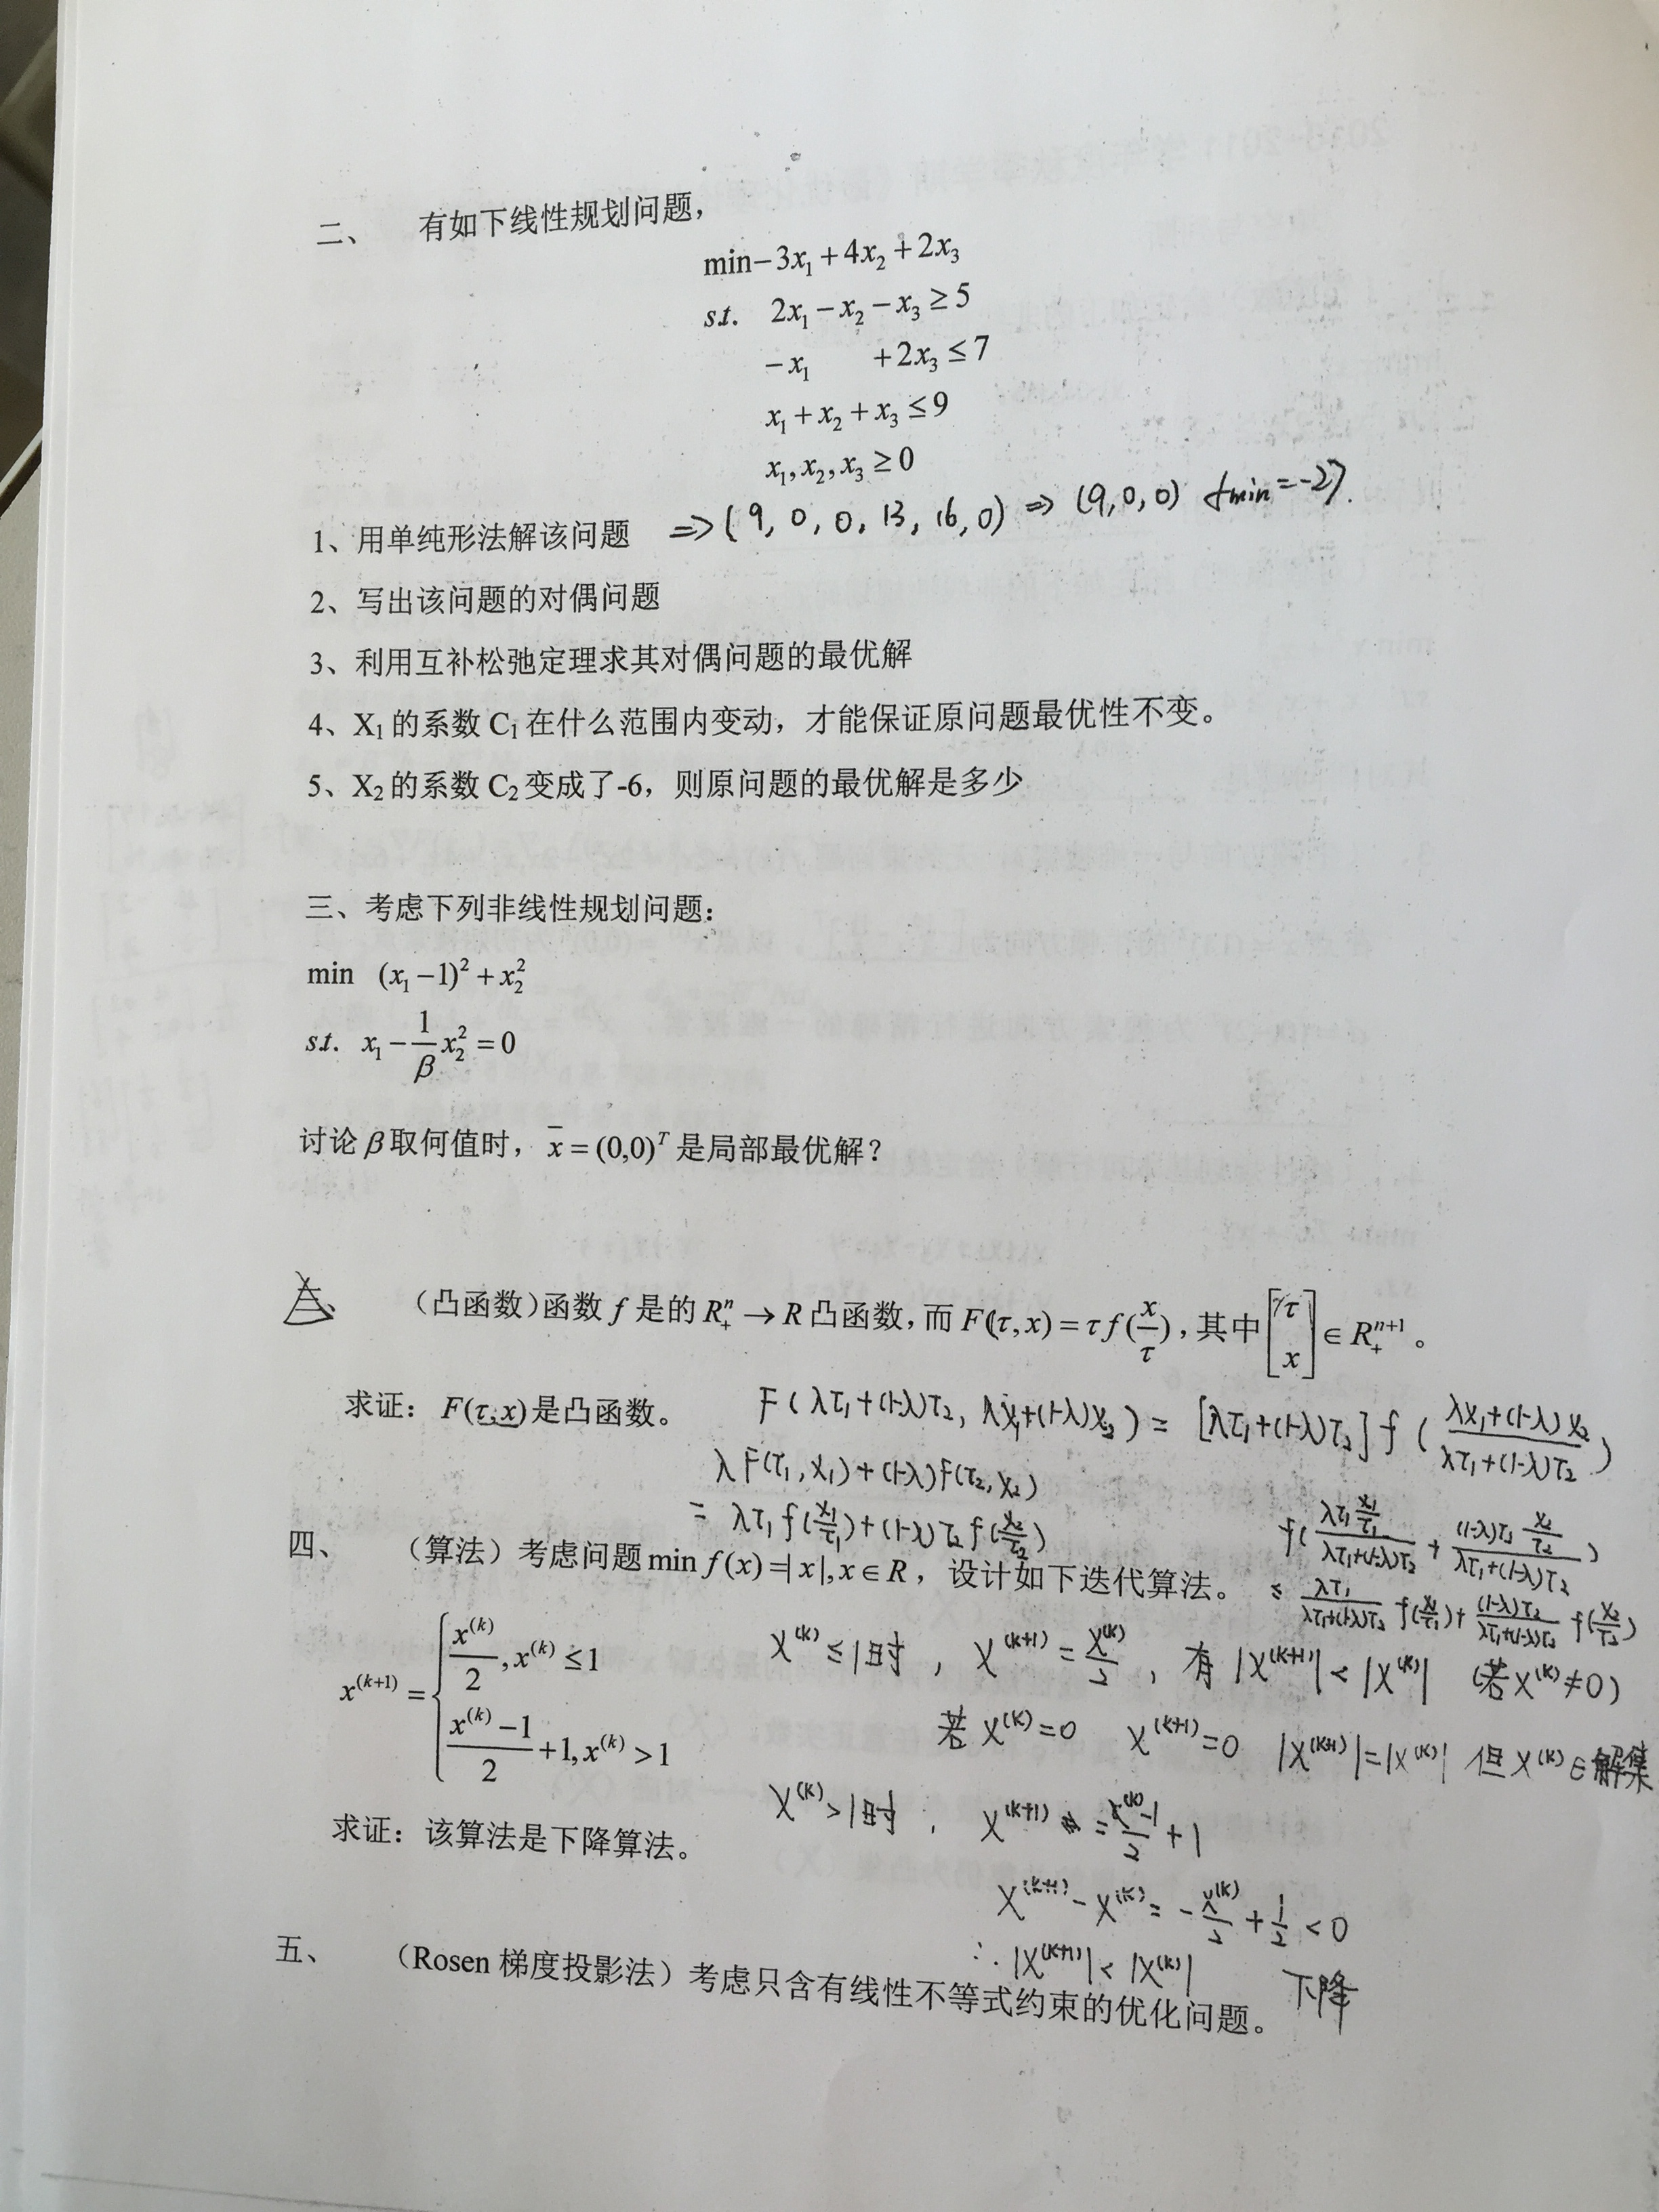 二、 有如下线性规划问题，
min−3x₁+4x₂+2x₃
s.t. 2x₁−x₂−x₃≥5
−x₁ +2x₃≤7
x₁+x₂+x₃≤9
x₁,x₂,x₃≥0
1、用单纯形法解该问题 ⇒(9, 0, 0, 13, 16, 0) ⇒ (9, 0, 0) fmin=-27.
2、写出该问题的对偶问题
3、利用互补松弛定理求其对偶问题的最优解
4、X₁的系数C₁在什么范围内变动，才能保证原问题最优性不变。
5、X₂的系数C₂变成了-6，则原问题的最优解是多少
三、考虑下列非线性规划问题：
min (x₁−1)²+x₂²
s.t. x₁−(1/β)x₂²=0
讨论β取何值时，x̄=(0,0)ᵀ是局部最优解？
三、 （凸函数）函数 f 是的R₊ⁿ→R凸函数，而F(τ,x)=τf(x/τ)，其中[τ x]∈R₊ⁿ⁺¹。
求证：F(τ,x)是凸函数。 F(λτ₁+(1-λ)τ₂, λx₁+(1-λ)x₂) = [λτ₁+(1-λ)τ₂] f((λx₁+(1-λ)x₂)/(λτ₁+(1-λ)τ₂))
λF(τ₁, x₁)+(1-λ)F(τ₂, x₂)
= λτ₁f(x₁/τ₁)+(1-λ)τ₂f(x₂/τ₂)
f((λτ₁ x₁/τ₁)/(λτ₁+(1-λ)τ₂) + ((1-λ)τ₂ x₂/τ₂)/(λτ₁+(1-λ)τ₂))
≤ λτ₁/(λτ₁+(1-λ)τ₂) f(x₁/τ₁)+ (1-λ)τ₂/(λτ₁+(1-λ)τ₂) f(x₂/τ₂)
四、 （算法）考虑问题min f(x)=|x|,x∈R，设计如下迭代算法。
x⁽ᵏ⁺¹⁾={ x⁽ᵏ⁾/2, x⁽ᵏ⁾≤1
(x⁽ᵏ⁾−1)/2+1, x⁽ᵏ⁾>1
x⁽ᵏ⁾≤1时， x⁽ᵏ⁺¹⁾=x⁽ᵏ⁾/2， 有|x⁽ᵏ⁺¹⁾|<|x⁽ᵏ⁾| (若x⁽ᵏ⁾≠0)
若x⁽ᵏ⁾=0 x⁽ᵏ⁺¹⁾=0 |x⁽ᵏ⁺¹⁾|=|x⁽ᵏ⁾| 但x⁽ᵏ⁾∈解集
x⁽ᵏ⁾>1时， x⁽ᵏ⁺¹⁾=(x⁽ᵏ⁾-1)/2+1
求证：该算法是下降算法。
x⁽ᵏ⁺¹⁾-x⁽ᵏ⁾=-x⁽ᵏ⁾/2+1/2<0
∴|x⁽ᵏ⁺¹⁾|<|x⁽ᵏ⁾| 下降
五、 （Rosen梯度投影法）考虑只含有线性不等式约束的优化问题。